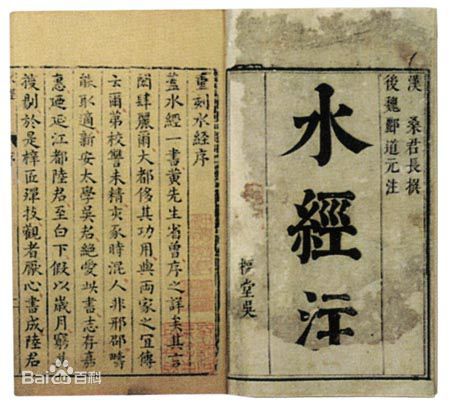 漢 桑君長撰
後魏酈道元注
水經注
堂吳
重刻水經序
蓋水經一書黃先生省曾序之詳矣其言
閎肆麗爾大都侈其功用與兩家之宜傳
云爾第校讐未精亥豕時混人非邢邵疇
能取適新安太學吳君絕愛此書志存嘉
惠迺延江都陸君至白下假以歲月窮
剔於是梓匠殫技觀者厭心書成陸君
Bai 百科